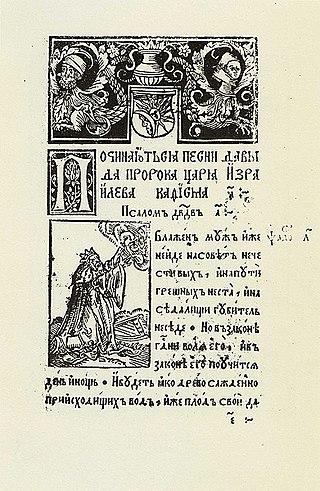 Починаютьсіа песни давы
да пророка царіа изра
илева кафисма а҃·
Псаломъ двдвъ а҃·
Блаженъ мужъ иже
нейде насоветъ нече
стивыхъ, инапути
грешныхъ неста, ина
седалищи губитель
неседе • Но възаконе
гани волѧ его, ивъ
законе его поучитсѧ
день инощь • Ибудеть ꙗко древо сажденно
приисходищихъ водъ, иже плодъ свои да